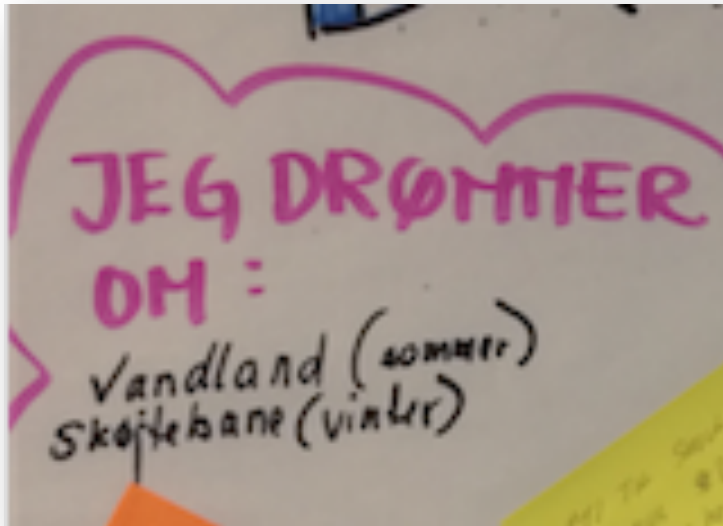 JEG DRØMMER
OM :
Vandland (sommer)
Skøjtebane (vinter)